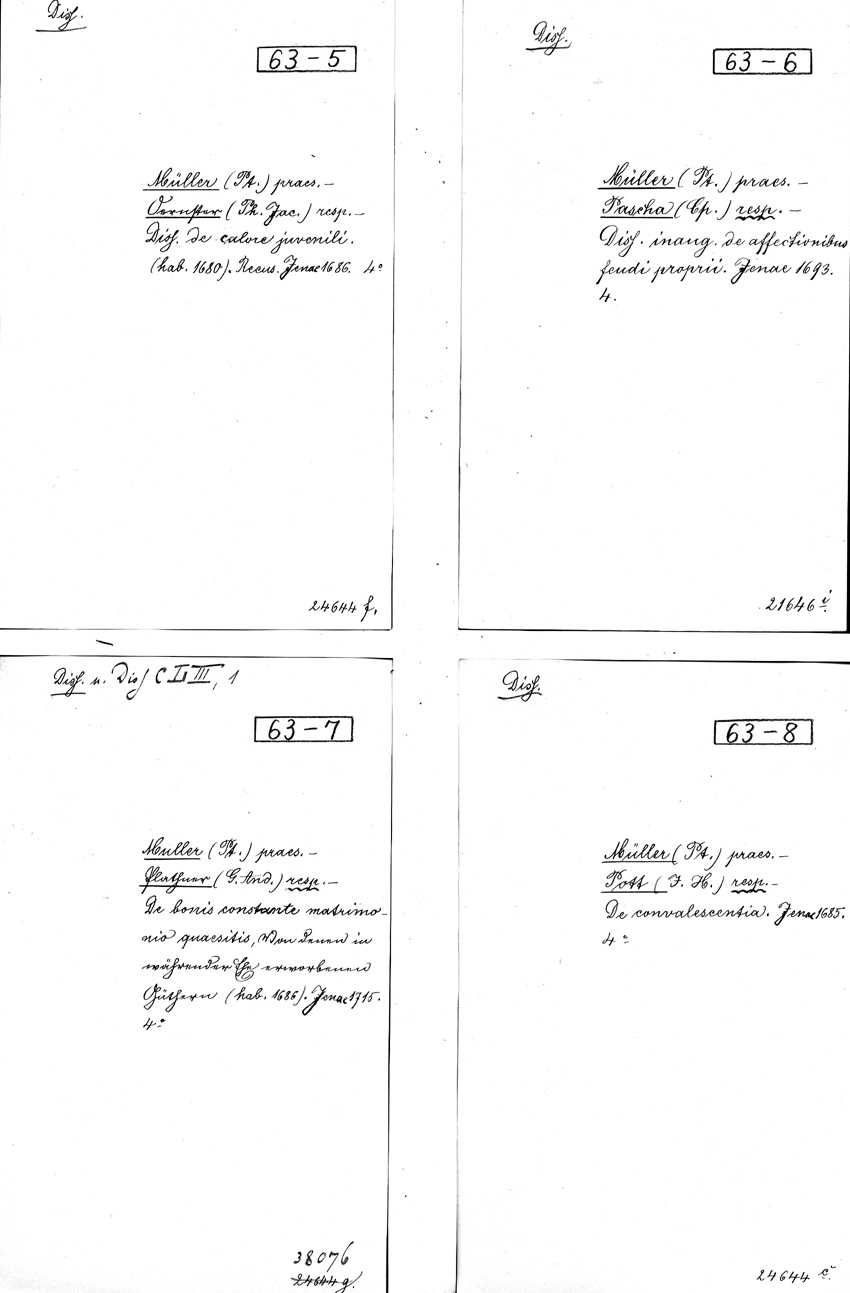 Diss.
63-5
Müller (Pt.) praes. —
Oernster (Ph. Jac.) resp. —
Diss. de calore juvenili.
(hab. 1680). Recus. Jenae 1686. 4°
24644 f.
Diss.
63-6
Müller (Pt.) praes. —
Pascha (Cp.) resp. —
Diss. inaug. de affectionibus
feudi proprii. Jenae 1693.
4.
21646 i.
Diss. u. Diss C L III, 1
63-7
Muller (Pt.) praes. —
Plathner (G. And.) resp. —
De bonis constante matrimo-
nio quaesitis, Von denen in
währender Ehe erworbenen
Güthern (hab. 1686). Jenae 1715.
4°
38076
24644 g.
Diss.
63-8
Müller (Pt.) praes. —
Pott (J. H.) resp. —
De convalescentia. Jenae 1685.
4°
24644 c.